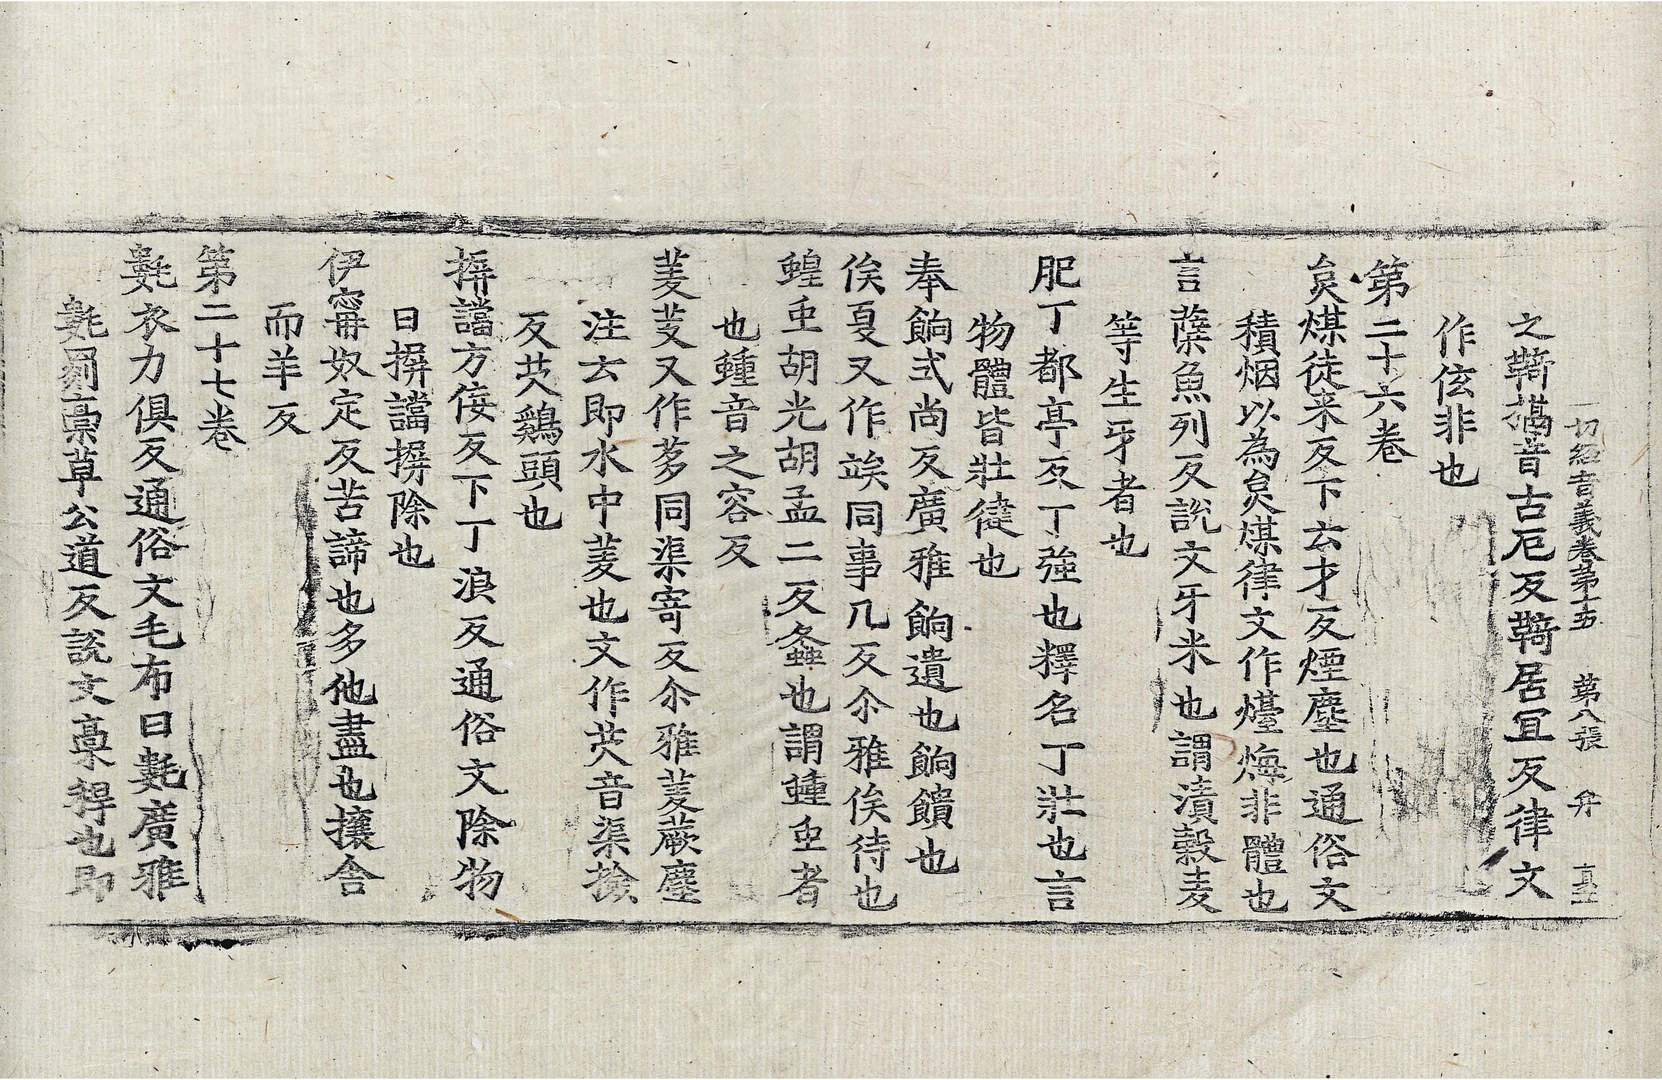 一切經音義卷第十五　第八張　弁
之鞲掲音古厄反鞲居冝反律文
作伭非也
第二十六卷
炱煤徒来反下亡才反煙塵也通俗文
積烟以為炱煤律文作㙜煤非體也
言蘖魚列反說文牙米也謂漬穀麦
等生牙者也
肥丁都亭反丁強也釋名丁壯也言
物體皆壯徤也
奉餉式尚反廣雅餉遺也餉饋也
俟夏又作竢同事几反尒雅俟待也
蝗虫胡光胡孟二反螽也謂蝩虫者
也蝩音之容反
蔆芰又作茤同渠寄反尒雅蔆蕨攗
注云即水中蔆也文作芡音渠撿
反芡鷄頭也
摒擋方倿反下丁浪反通俗文除物
曰摒擋摒除也
伊寗奴定反苦諦也多他盡也攘舍
而羊反
第二十七卷
㲣衣力俱反通俗文毛布曰㲣廣雅
㲣罽稾草公道反說文稾稈也即